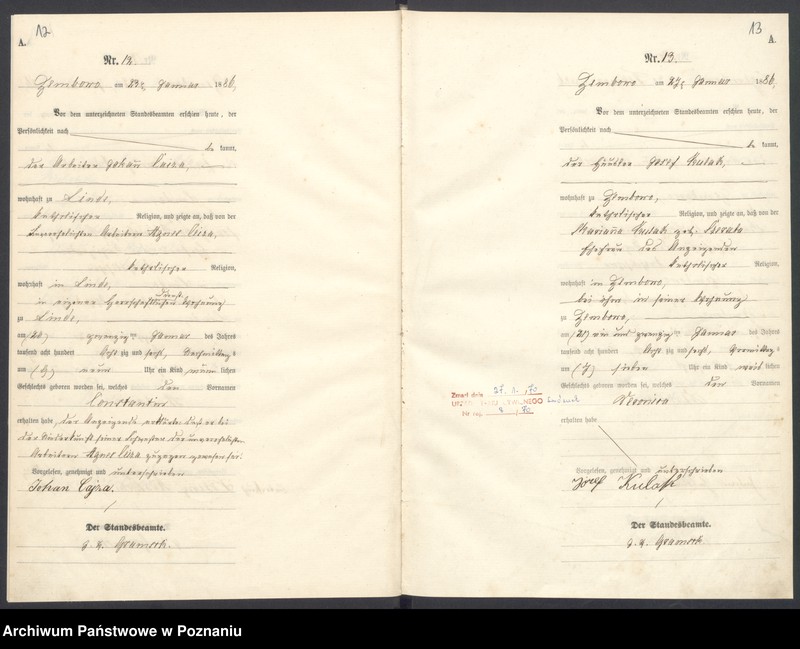 12
A.
Nr. 12.
Zembowo am 23ten Januar 1886.
Vor dem unterzeichneten Standesbeamten erschien heute, der
Persönlichkeit nach
be kannt,
der Arbeiter Johan
wohnhaft zu Linde,
katholischer Religion, und zeigte an, daß von der
unverehelichten Arbeiterin Agnes
katholischer Religion,
wohnhaft in Linde,
in eigener Wohnung
zu Linde,
am (20) zwanzigsten Januar des Jahres
tausend acht hundert acht zig und sechs, Nachmittags
um (9) neun Uhr ein Kind männ lichen
Geschlechts geboren worden sei, welches den Vornamen
Constantin
erhalten habe, der Anzeigende erklärte daß er bei
der Niederkunft seiner Schwester der unverehelichten
Arbeiterin Agnes zugegen gewesen sei.
Vorgelesen, genehmigt und unterschrieben
Johan Cajza.
Der Standesbeamte.
13
A.
Nr. 13.
Zembowo am 27ten Januar 1886.
Vor dem unterzeichneten Standesbeamten erschien heute, der
Persönlichkeit nach
be kannt,
der Häusler Josef Kulak,
wohnhaft zu Zembowo,
katholischer Religion, und zeigte an, daß von der
Marianna Kulak geb.
Ehefrau des Anzeigenden
katholischer Religion,
wohnhaft in Zembowo,
bei ihm in seiner Wohnung
zu Zembowo,
am (21) ein und zwanzigsten Januar des Jahres
tausend acht hundert acht zig und sechs, Vormittags
um (7) sieben Uhr ein Kind weib lichen
Geschlechts geboren worden sei, welches den Vornamen
Veronica
erhalten habe
Vorgelesen, genehmigt und unterschrieben
Józef Kulak
Der Standesbeamte.
Zmarł dnia
Nr rej.
Archiwum Państwowe w Poznaniu